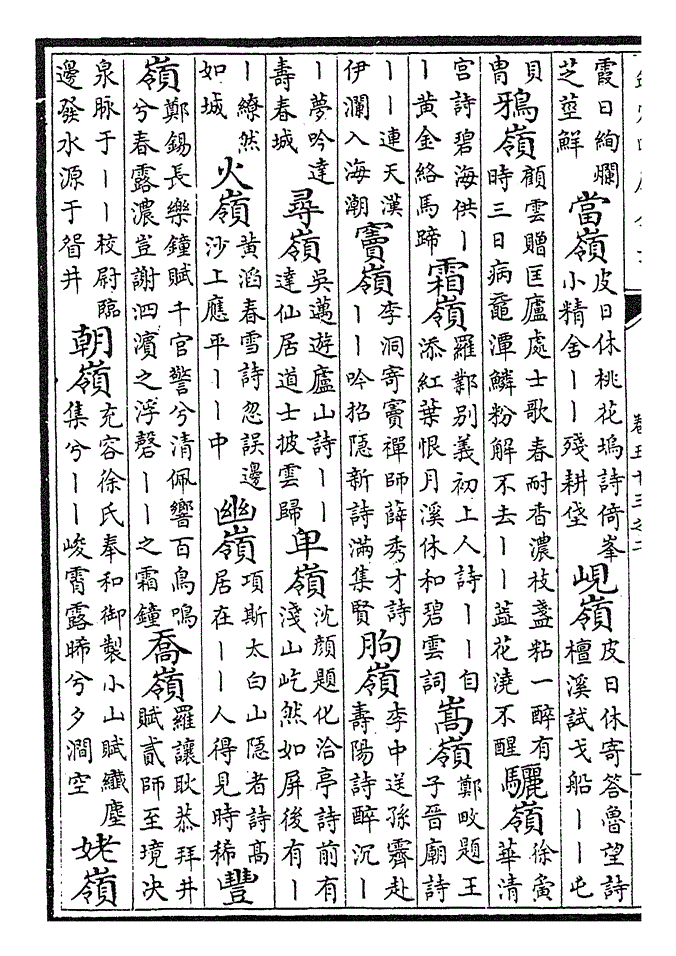 卷五十三之二
霞日絢爛芝莖鮮 當嶺 皮日休桃花塢詩倚峯小精舍丨丨殘耕垡 峴嶺 皮日休寄答魯望詩檀溪試戈船丨丨屯
貝胄 鴉嶺 顧雲贈匡廬處士歌春耐香濃枝盞粘一醉有時三日病黿潭鱗粉解不去丨丨蕋花澆不醒 驪嶺 徐夤華清
宮詩碧海供丨丨黃金絡馬蹄 霜嶺 羅鄴別義初上人詩丨丨自添紅葉恨月溪休和碧雲詞 嵩嶺 鄭畋題王子晉廟詩
丨丨連天漢伊瀾入海潮 竇嶺 李洞寄竇禪師薛秀才詩丨丨吟招隱新詩滿集賢 朐嶺 李中送孫霽赴壽陽詩醉沉丨
丨夢吟達壽春城 尋嶺 吳邁遊廬山詩丨丨達仙居道士披雲歸 卑嶺 沈顏題化洽亭詩前有淺山屹然如屏後有丨
丨繚然如城 火嶺 黃滔春雪詩忽誤邊沙上應平丨丨中 幽嶺 項斯太白山隱者詩高居在丨丨人得見時稀 豐
嶺 鄭錫長樂鐘賦千官警兮清佩響百鳥鳴兮春露濃豈謝泗濱之浮磬丨丨之霜鐘 喬嶺 羅讓耿恭拜井賦貳師至境決
泉脉于丨丨校尉臨邊發水源于眢井 朝嶺 充容徐氏奉和御製小山賦纖塵集兮丨丨峻霄露晞兮夕澗空 姥嶺